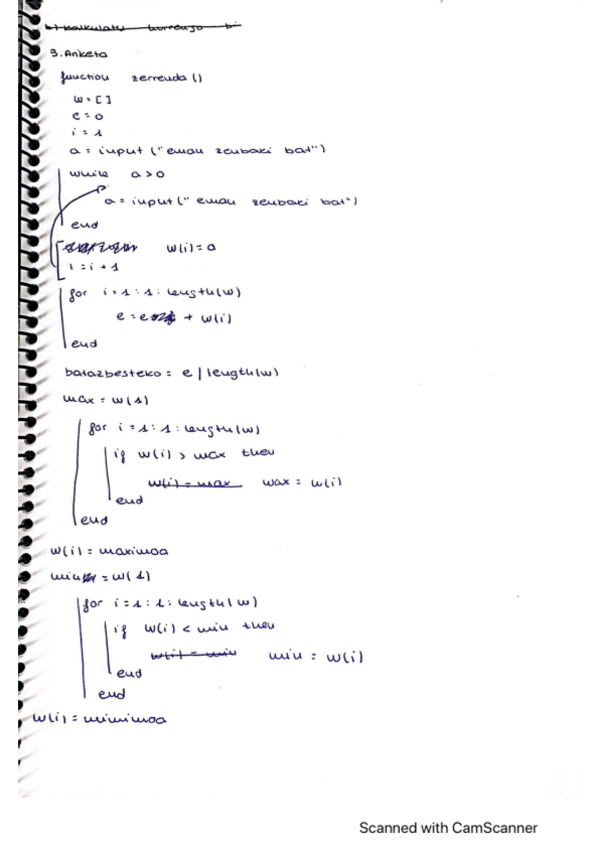 9. Anketa
function zerrenda ()
w = [ ]
e = 0
i = 1
a = input ("eman zenbaki bat")
while a > 0
a = input (" eman zenbaki bat")
end
w(i) = a
i = i + 1
for i = 1 : 1 : length(w)
e = e + w(i)
end
batazbesteko = e / length(w)
max = w(1)
for i = 1 : 1 : length(w)
if w(i) > max then
w(i) = max max = w(i)
end
end
w(i) = maximoa
min = w(1)
for i = 1 : 1 : length(w)
if w(i) < min then
w(i) = min min = w(i)
end
end
w(i) = minimoa
Scanned with CamScanner